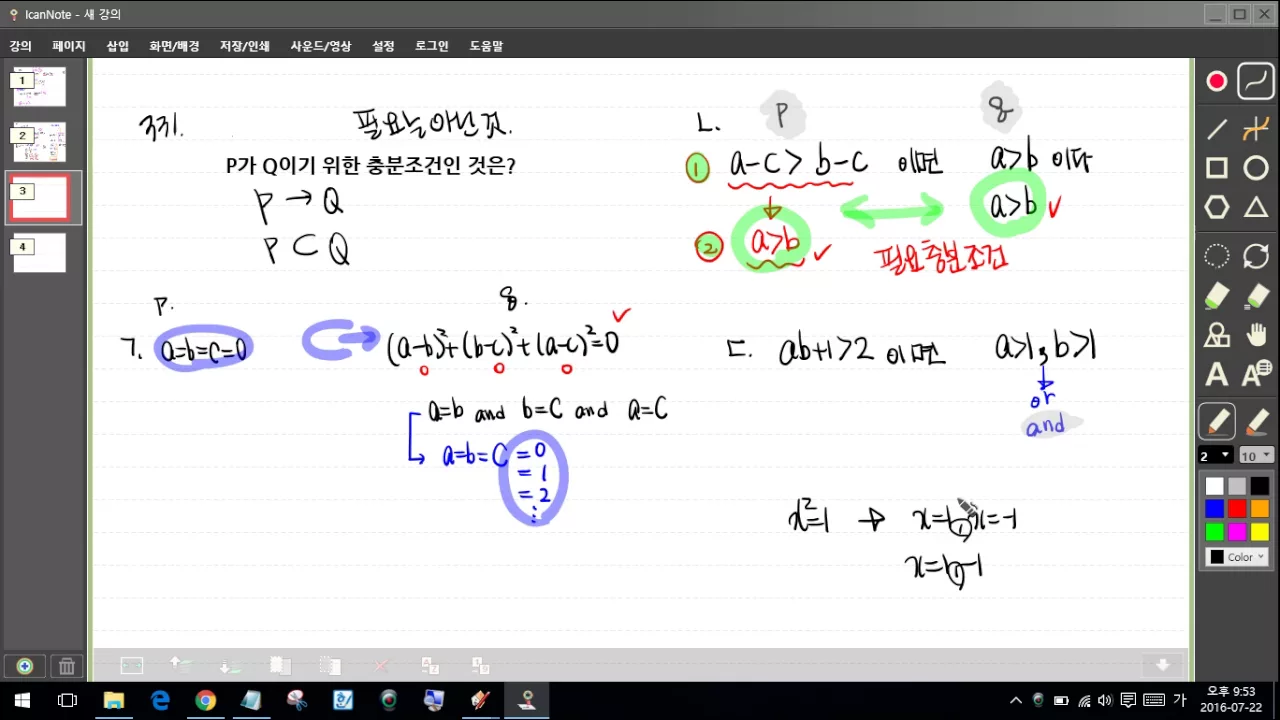 IcanNote - 새 강의
강의 페이지 삽입 화면/배경 저장/인쇄 사운드/영상 설정 로그인 도움말
1
2
3
4
331.
필요늘아닌것.
P가 Q이기 위한 충분조건인 것은?
P → Q
P ⊂ Q
P.
q.
ㄱ. a=b=c=0
(a-b)²+(b-c)²+(a-c)²=0 ✓
0 0 0
a=b and b=c and a=c
a=b=c =0
=1
=2
⋮
ㄴ.
P
q
① a-c > b-c 이면 a>b 이다
a>b ✓
② a>b ✓
필요충분조건
ㄷ. ab+1>2 이면 a>1, b>1
or
and
x²=1 → x=1, x=-1
x=1, -1
2
10
Color
가
오후 9:53
2016-07-22